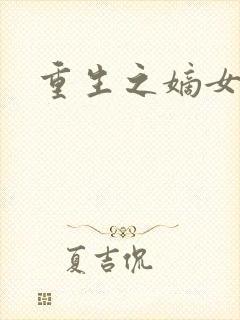 重生之嫡女
夏吉侃